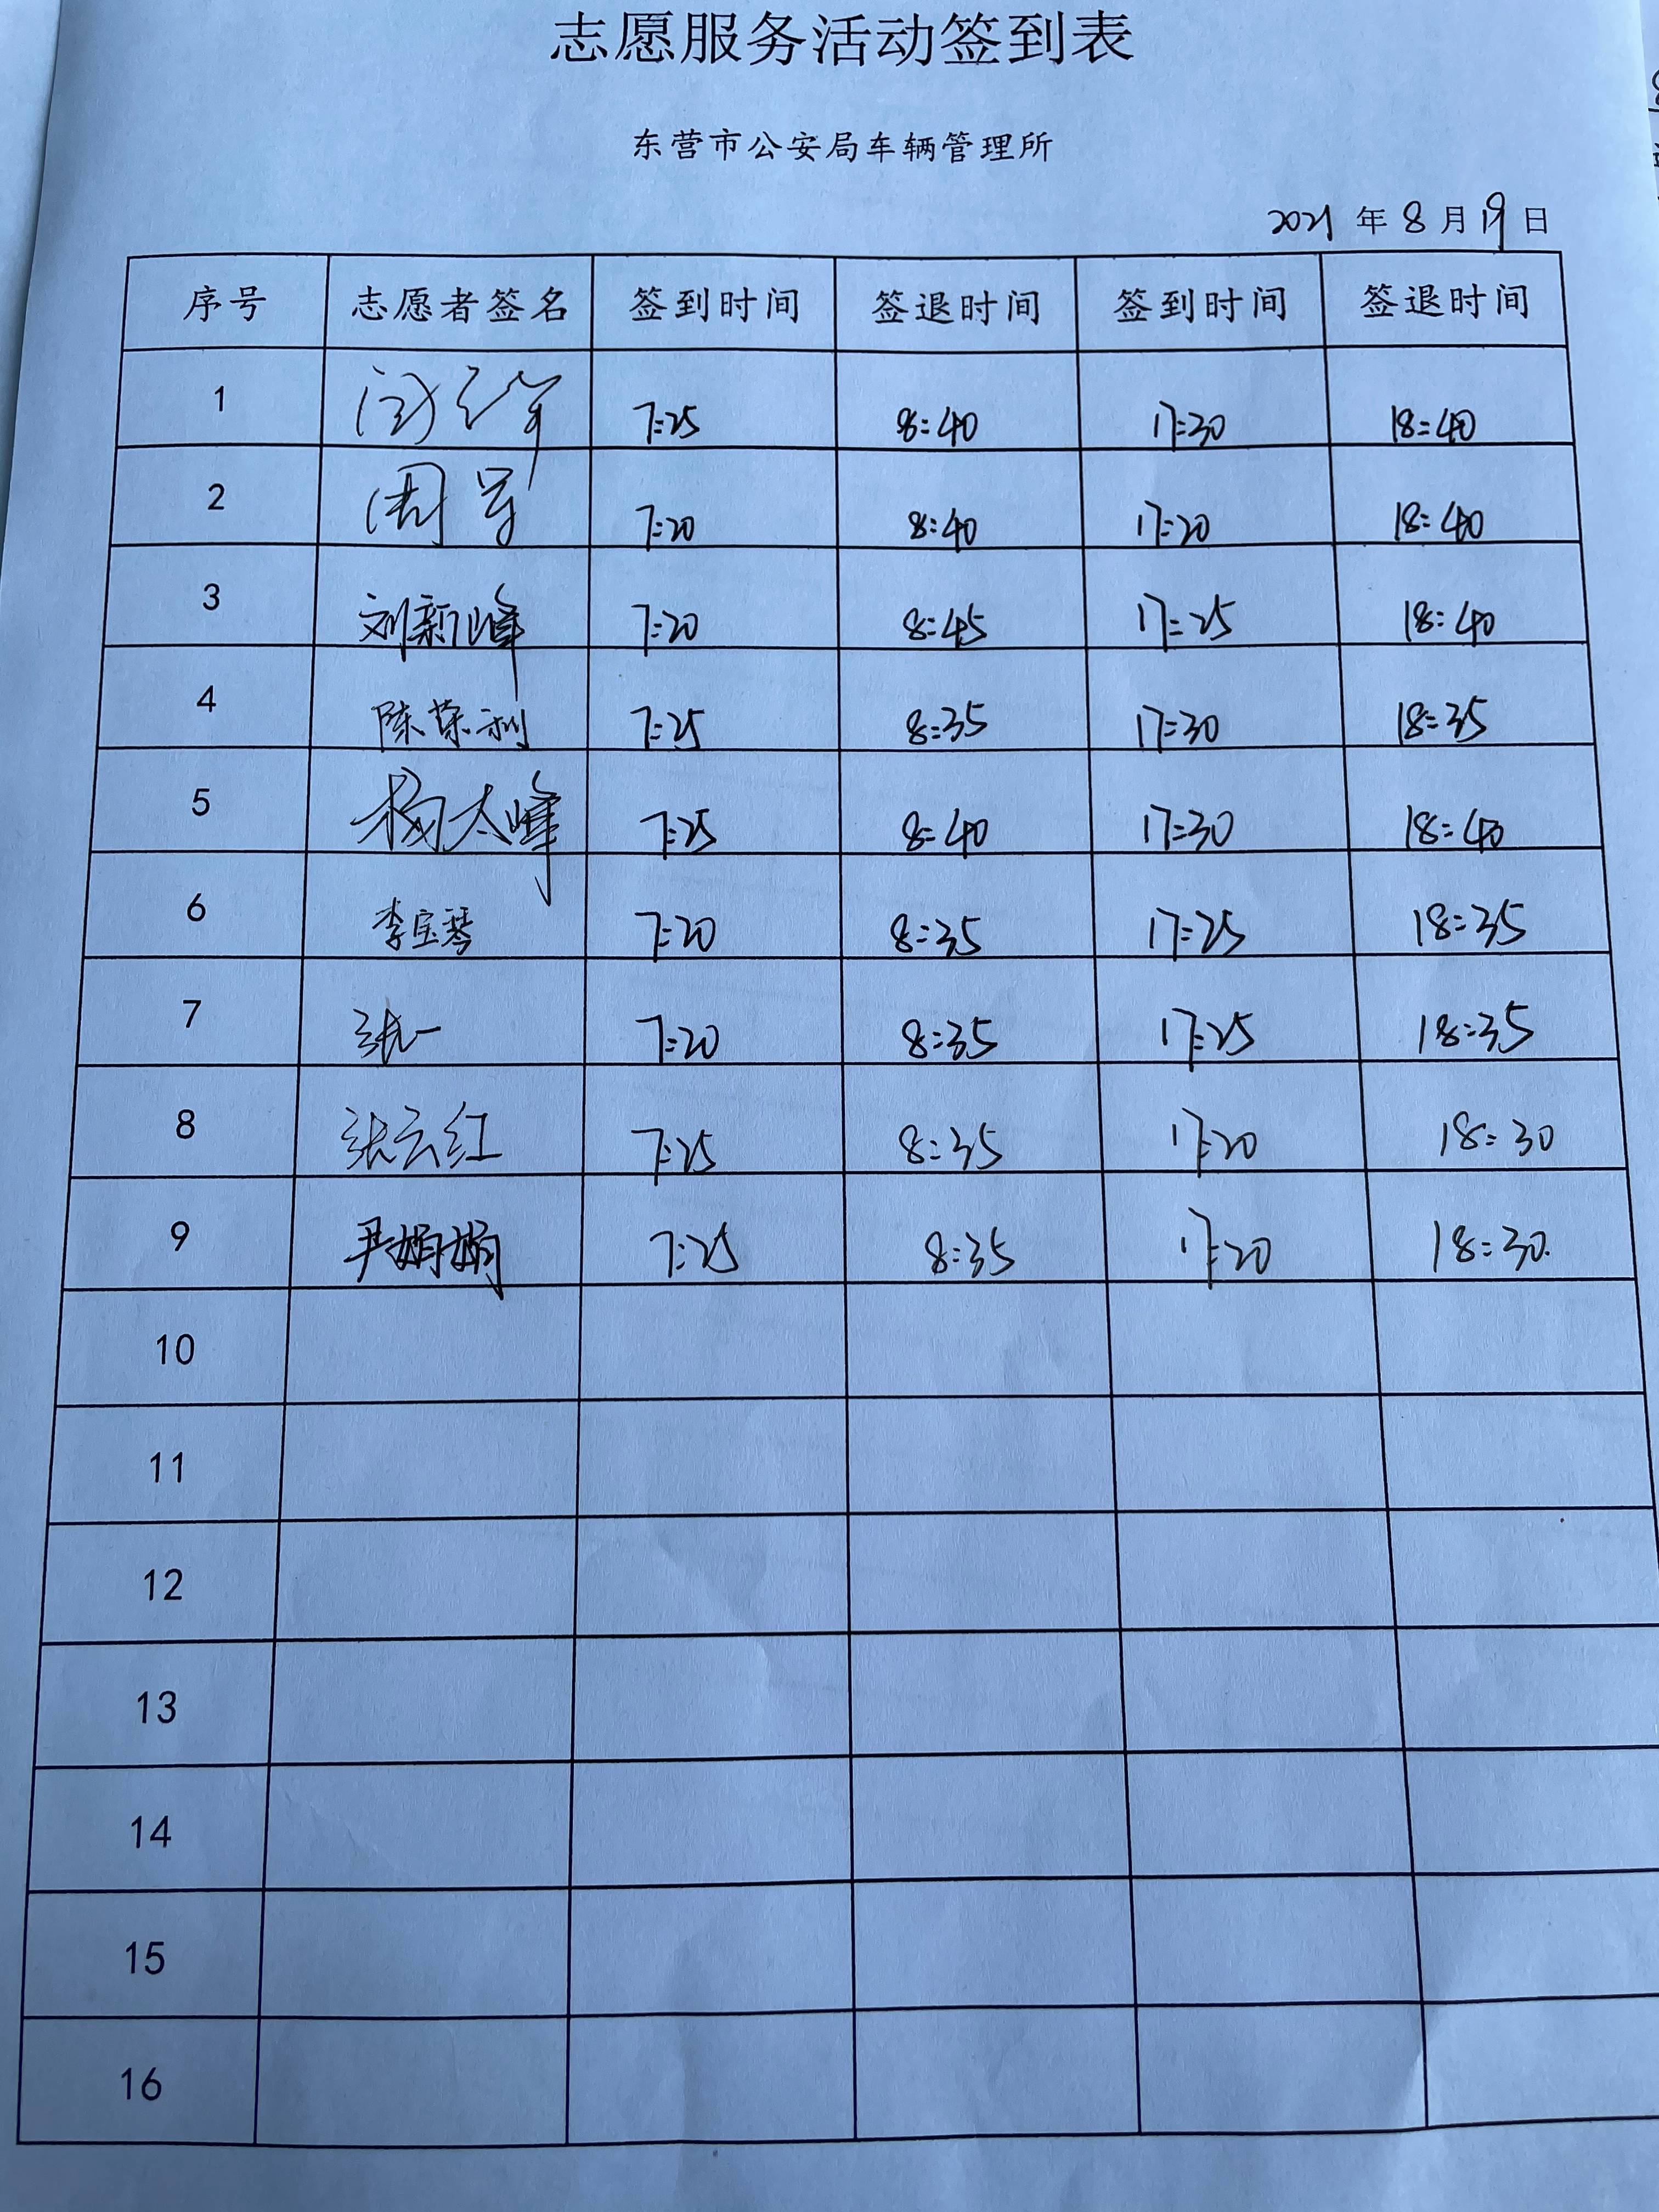 志愿服务活动签到表
东营市公安局车辆管理所
2021 年 8 月 19 日
序号 志愿者签名 签到时间 签退时间 签到时间 签退时间
1 7:25 8:40 17:30 18:40
2 周军 7:20 8:40 17:20 18:40
3 刘新峰 7:20 8:45 17:25 18:40
4 陈荣利 7:25 8:35 17:30 18:35
5 杨太峰 7:25 8:40 17:30 18:40
6 李宝琴 7:20 8:35 17:25 18:35
7 张一 7:20 8:35 17:25 18:35
8 张云红 7:25 8:35 17:20 18:30
9 尹娟娟 7:25 8:35 17:20 18:30.
10
11
12
13
14
15
16